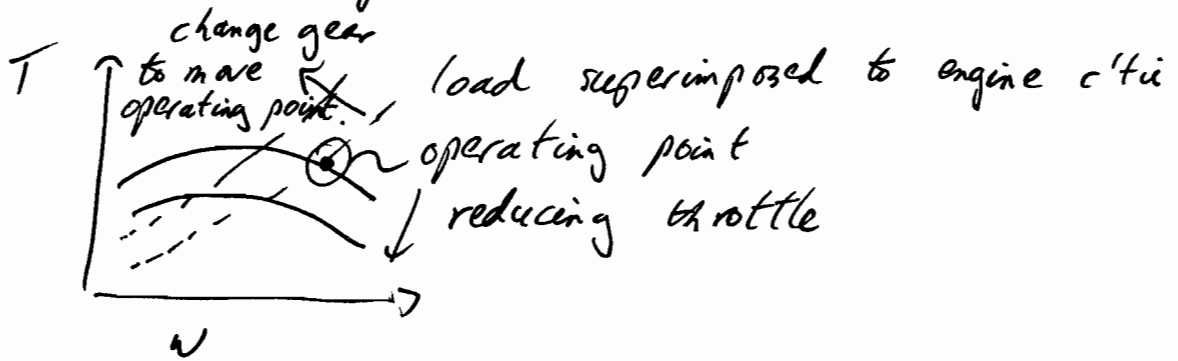 change gear
to move
operating point.
T
load superimposed to engine c'tic
operating point
reducing throttle
w